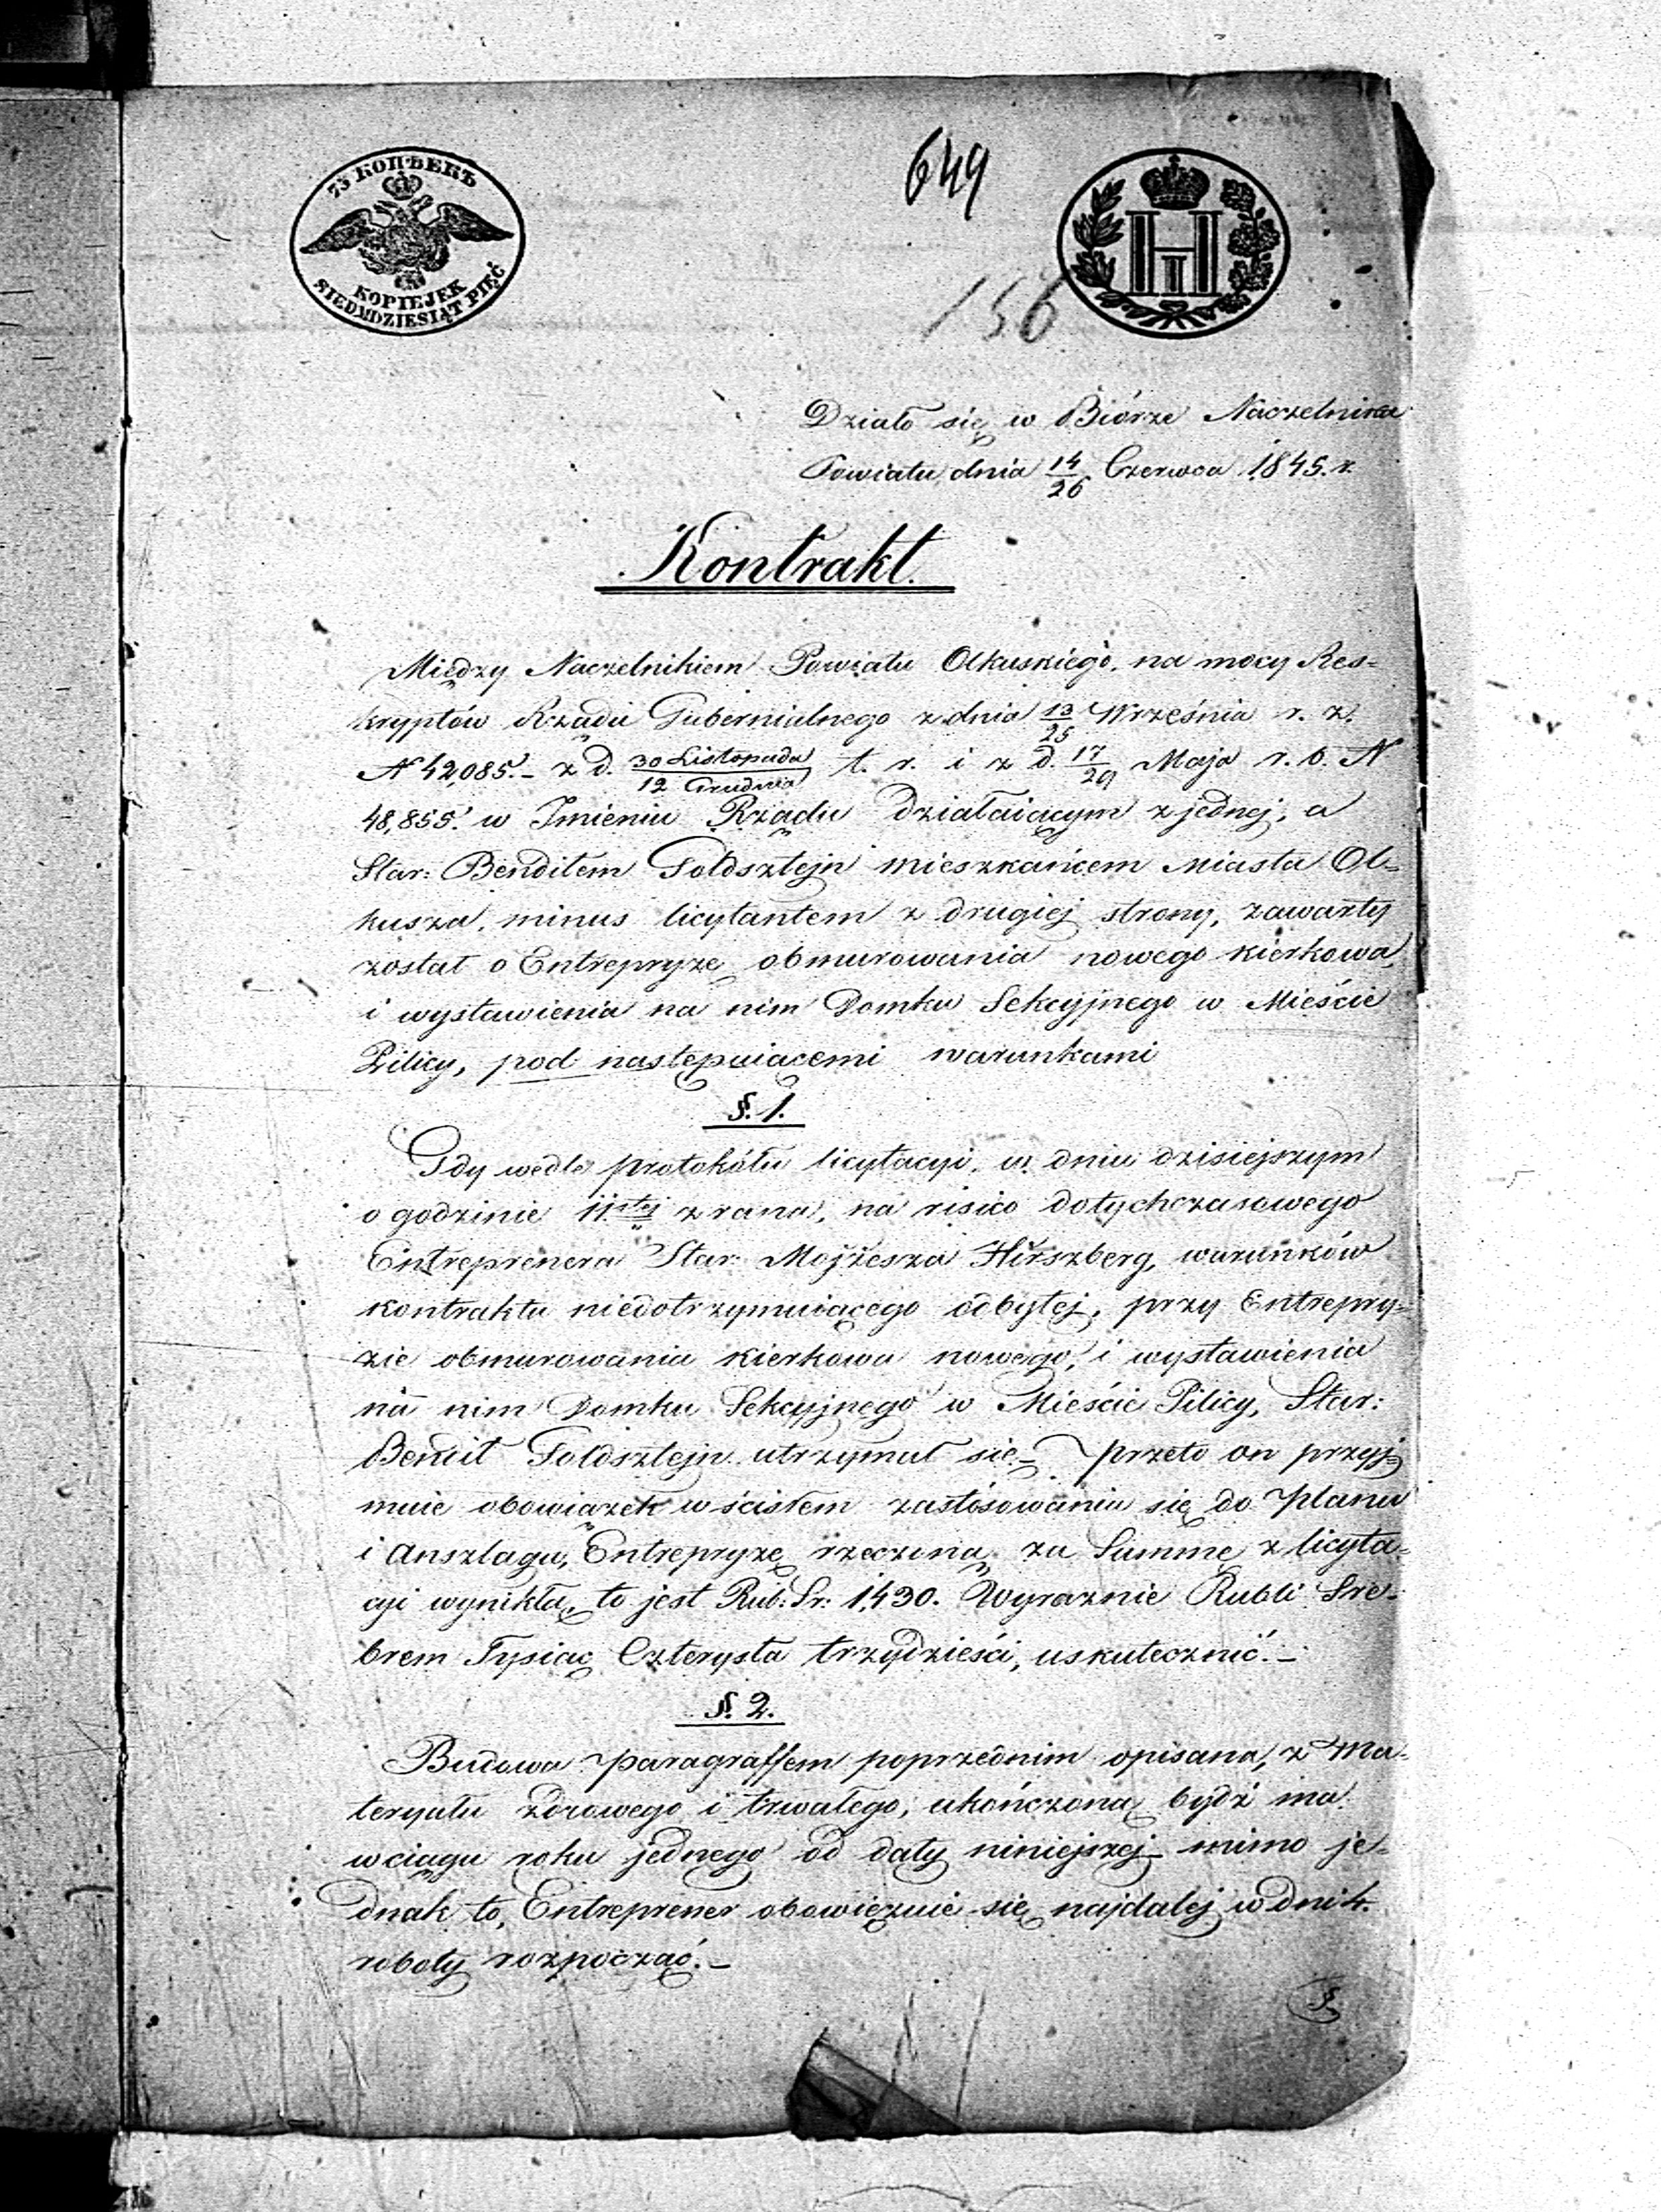 75 КОПѢЕКЪ
KOPIEJEK
SIEDMDZIESIĄT PIĘĆ
649
НI
156
Działo się w Biórze Naczelnika
Powiatu dnia 14/26 Czerwca 1845. r.
Kontrakt.
Między Naczelnikiem Powiatu Olkuskiego. na mocy Res=
kryptów Rządu Gubernialnego z dnia 13/25 Września r. z.
N 42,085.- z d. 30 Listopada/12 Grudnia t. r. i z d. 17/29 Maja r. b. N
48,855. w Imieniu Rządu działaiącym z jednej, a
Star: Benditem Goldsztejn mieszkańcem Miasta Ol=
kusza, minus licytantem z drugiej strony, zawarty
został o Entrepryzę obmurowania nowego kierkowa,
i wystawienia na nim Domku Sekcyjnego w Mieście
Pilicy, pod następuiącemi warunkami
§. 1.
Gdy wedle protokółu licytacyi, w dniu dzisiejszym
o godzinie 11stej z rana, na risico dotychczasowego
Entreprenera Star: Mojżesza Hirszberg, warunków
kontraktu niedotrzymuiącego odbytej, przy Entrepry=
zie obmurowania kierkowa nowego, i wystawienia
na nim Domku Sekcyjnego w Mieście Pilicy, Star:
Bendit Goldsztejn utrzymał się – przeto on przyj=
muie obowiązek w ścisłem zastósowaniu się do planu
i anszlagu, Entrepryzę rzeczoną za Summę z licyta=
cyi wynikłą, to jest Rub: Sr: 1,430. Wyraznie Rubli Sre=
brem Tysiąc Czterysta trzydzieści, uskutecznić. –
§. 2.
Budowa paragraffem poprzednim opisana, z Ma=
teryału zdrowego i trwałego, ukończoną bydź ma
w ciągu roku jednego od daty niniejszej – mimo je=
dnak to, Entreprener obowięzuie się najdalej w dni 4.
roboty rozpocząć. –
§.